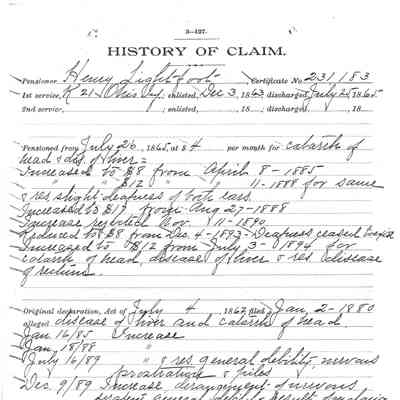 3—127.
HISTORY OF CLAIM.
Pensioner Henry Lightfoot, Certificate No. 231,183
1st service, K 21 Ohio Inf; enlisted, Dec 3, 1863 discharged July 25, 1865
2nd service, ; enlisted, , 18 ; discharged , 18
Pensioned from July 26, 1865 at $4 per month for catarrh of
head & dis. of liver =
Increased to $8 from April 8 - 1885
" " $12 " " 11 - 1888 for same
& res. slight deafness of both ears.
Increased to $17 from Aug 27 - 1888
Increase rejected Nov 11 - 1890
Reduced to $8 from Dec. 4 - 1893 - Deafness ceased
Increased to $12 from July 3 - 1894 for
catarrh of head, disease of liver & res. disease
of rectum.
Original declaration, Act of July 4 1862, filed Jan, 2 - 1880
alleged disease of liver and catarrh of head
Jan 16/85 Increase
Jan 18/88
July 16/89 " & res. general debility, nervous
prostration & piles
Dec. 9/89 Increase derangement of nervous